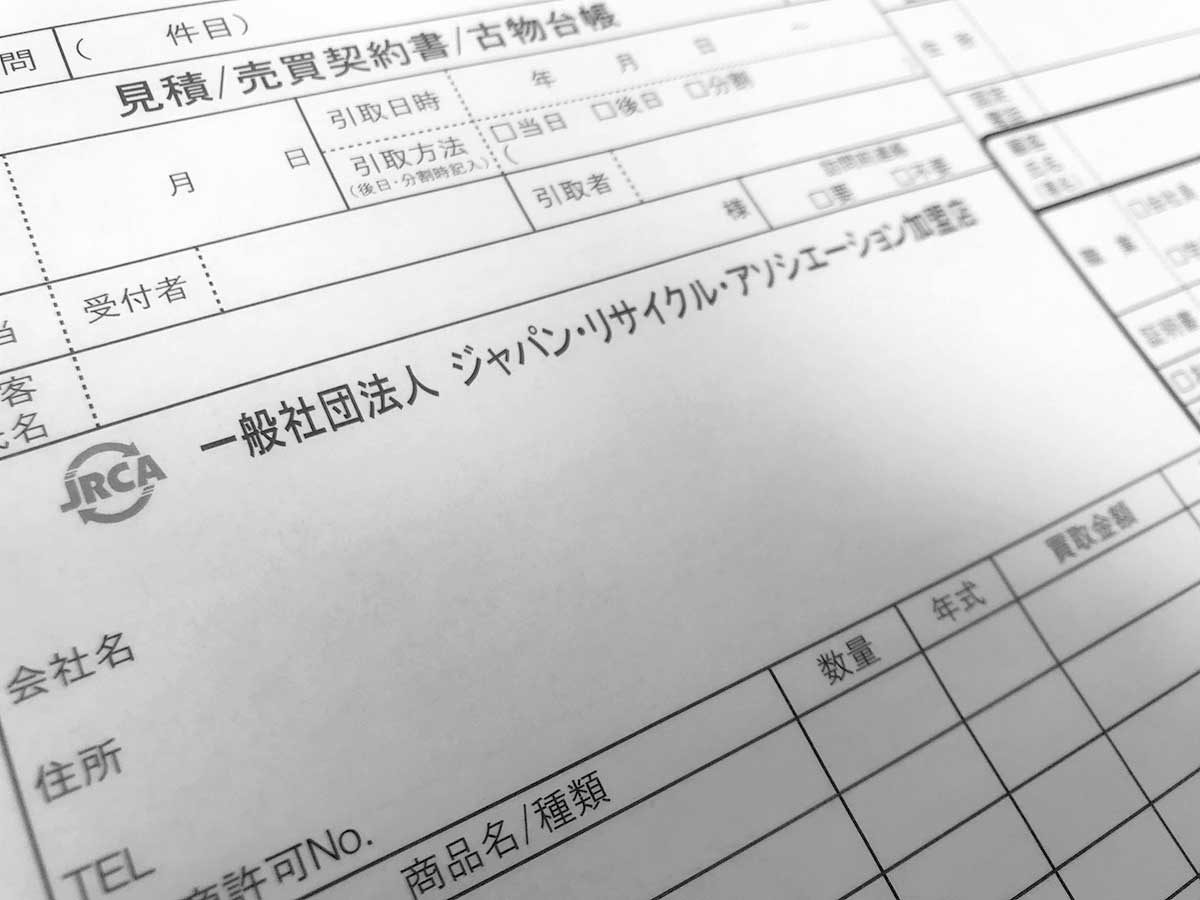 問 ( 件目)
見積/売買契約書/古物台帳
月 日
引取日時 年 月 日
引取方法 □当日 □後日 □分割
(後日・分割時記入) (
引取者 様
訪問前連絡
□要 □不要
受付者
当
客
氏名
住所
固定
電話
職業
□会社員
証明書
JRCA
一般社団法人 ジャパン・リサイクル・アソシエーション加盟店
会社名
住所
TEL
商許可No.
商品名/種類 数量 年式 買取金額